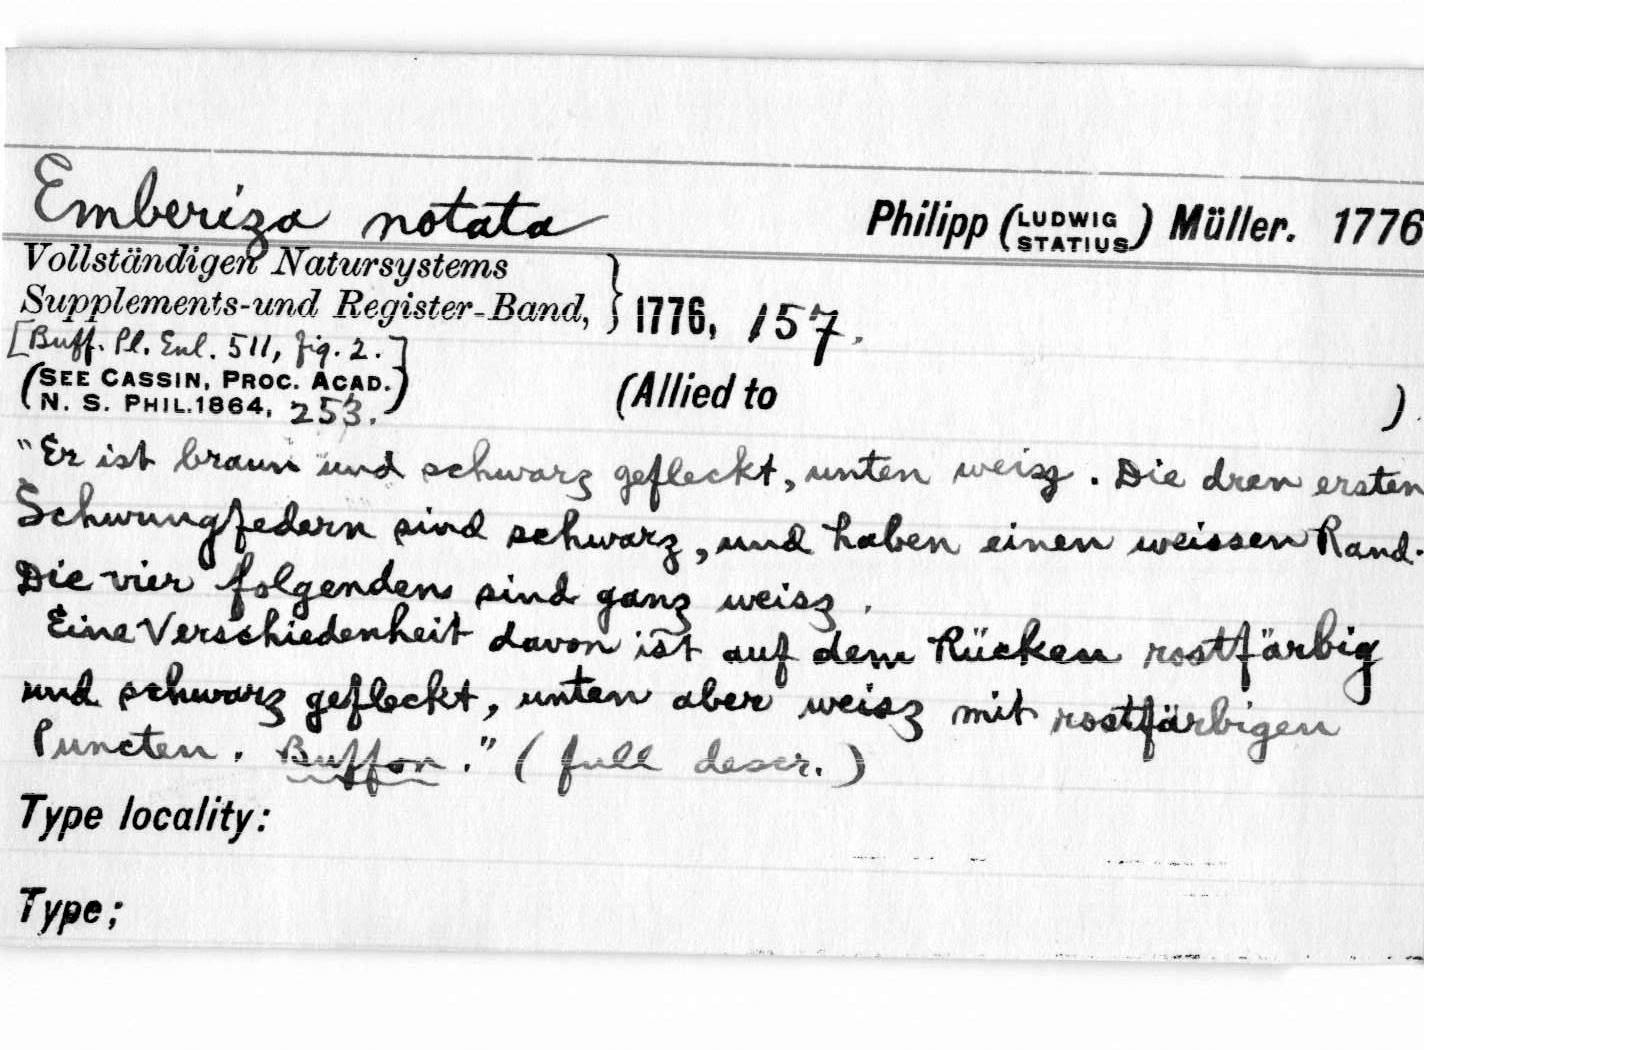 Emberiza notata Philipp (LUDWIG STATIUS) Müller. 1776
Vollständigen Natursystems
Supplements-und Register-Band, } 1776, 157.
[Buff. Pl. Enl. 511, fig. 2.]
(SEE CASSIN, PROC. ACAD.
N. S. PHIL. 1864, 253.) (Allied to )
"Er ist braun und schwarz gefleckt, unten weisz. Die dren ersten
Schwungfedern sind schwarz, und haben einen weissen Rand.
Die vier folgenden sind ganz weisz.
Eine Verschiedenheit davon ist auf dem Rücken rostfärbig
und schwarz gefleckt, unten aber weisz mit rostfärbigen
Puncten. Buffon." (full descr.)
Type locality:
Type;